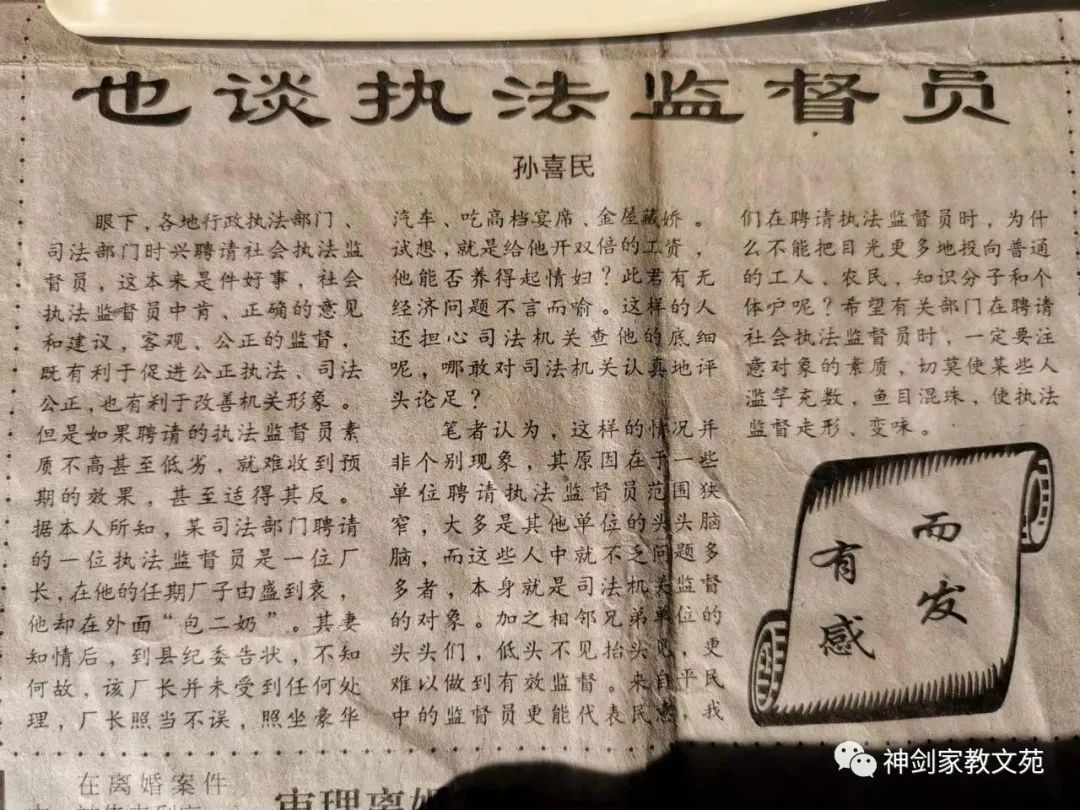 也谈执法监督员
孙喜民
眼下，各地行政执法部门、
司法部门时兴聘请社会执法监
督员，这本来是件好事，社会
执法监督员中肯、正确的意见
和建议，客观、公正的监督，
既有利于促进公正执法、司法
公正，也有利于改善机关形象。
但是如果聘请的执法监督员素
质不高甚至低劣，就难收到预
期的效果，甚至适得其反。
据本人所知，某司法部门聘请
的一位执法监督员是一位厂
长，在他的任期厂子由盛到衰，
他却在外面“包二奶”。其妻
知情后，到县纪委告状，不知
何故，该厂长并未受到任何处
理，厂长照当不误，照坐豪华
汽车、吃高档宴席、金屋藏娇。
试想，就是给他开双倍的工资，
他能否养得起情妇？此君有无
经济问题不言而喻。这样的人
还担心司法机关查他的底细
呢，哪敢对司法机关认真地评
头论足？
笔者认为，这样的情况并
非个别现象，其原因在于一些
单位聘请执法监督员范围狭
窄，大多是其他单位的头头脑
脑，而这些人中就不乏问题多
多者，本身就是司法机关监督
的对象。加之相邻兄弟单位的
头头们，低头不见抬头见，更
难以做到有效监督。来自平民
中的监督员更能代表民意，我
们在聘请执法监督员时，为什
么不能把目光更多地投向普通
的工人、农民、知识分子和个
体户呢？希望有关部门在聘请
社会执法监督员时，一定要注
意对象的素质，切莫使某些人
滥竽充数，鱼目混珠，使执法
监督走形、变味。
有感
而发
在离婚案件
审理离婚
神剑家教文苑